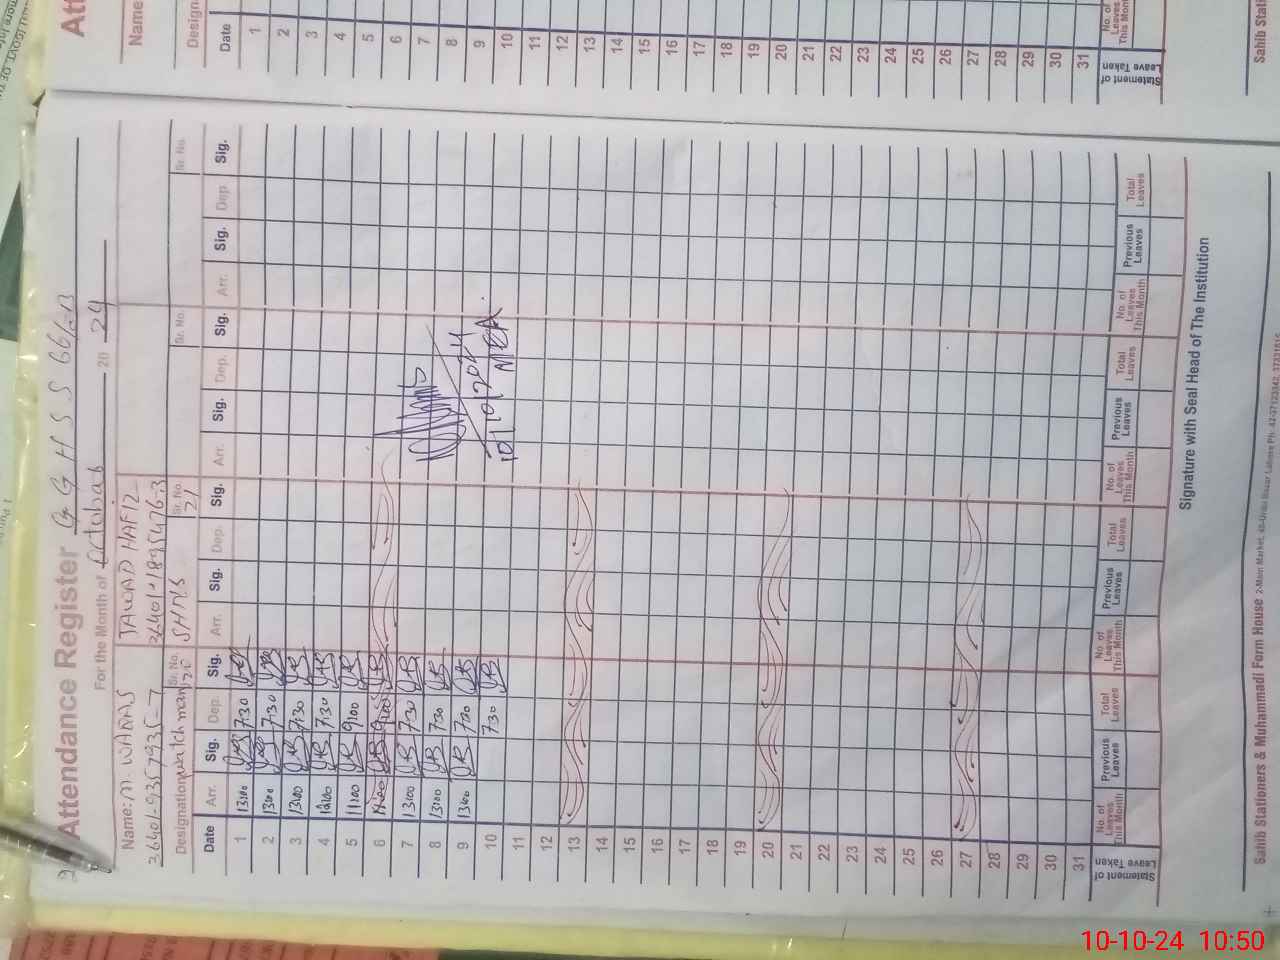 Attendance Register G G H S S 66/J.B
For the Month of October 20 24
Name: M. WARAS
36401-9357935-7
Designation Watch man
Sr. No. 20
JAWAD HAFIZ
36401-1895476-3
SHNS
Sr. No. 21
Sr. No.
Sr. No.
Date Arr. Sig. Dep. Sig. Arr. Sig. Dep. Sig. Arr. Sig. Dep. Sig. Arr. Sig. Dep. Sig.
1 13:00 7:30
2 13:00 7:30
3 13:00 7:30
4 12:00 7:30
5 11:00 9:00
6
7 13:00 7:30
8 13:00 7:30
9 13:00 7:30
10 7:30
11
12
13
14
15
16
17
18
19
20
21
22
23
24
25
26
27
28
29
30
31
10/10/2024
MEA
Statement of Leave Taken
No. of Leaves This Month Previous Leaves Total Leaves No. of Leaves This Month Previous Leaves Total Leaves No. of Leaves This Month Previous Leaves Total Leaves No. of Leaves This Month Previous Leaves Total Leaves
Signature with Seal Head of The Institution
Sahib Stationers & Muhammadi Form House 2-Main Market, 40-Urdu Bazar Lahore Ph: 42-37123342
Att
Name
Design
Date
1
2
3
4
5
6
7
8
9
10
11
12
13
14
15
16
17
18
19
20
21
22
23
24
25
26
27
28
29
30
31
Statement of Leave Taken
No. of Leaves This Mon
Sahib Stati
10-10-24 10:50